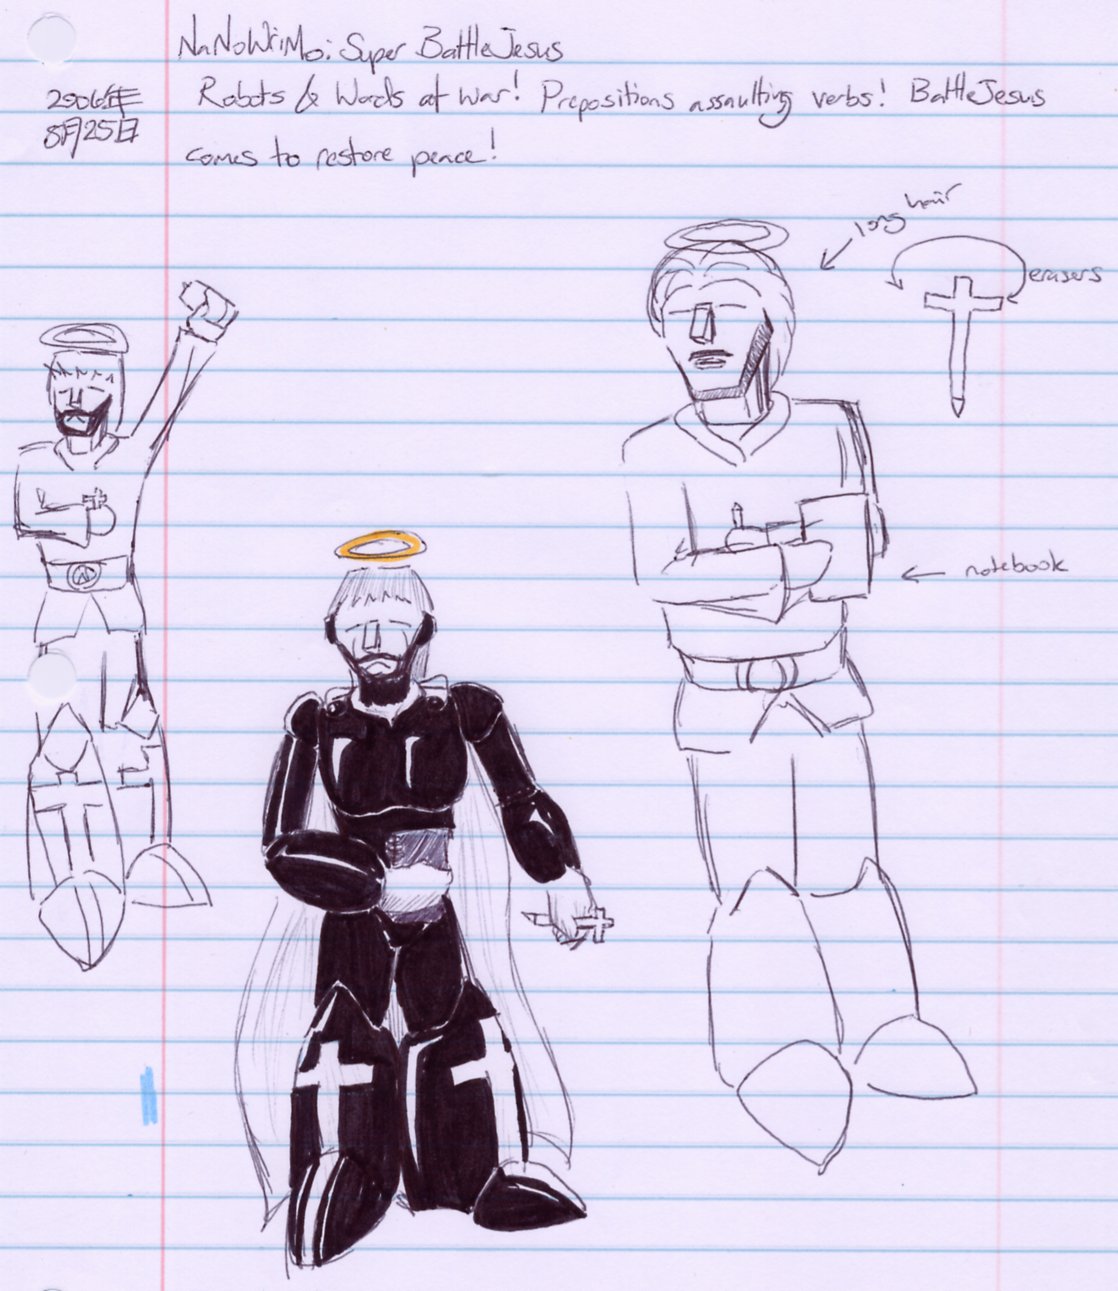 NaNoWriMo: Super BattleJesus
2006年
8月25日
Robots & Words at war! Prepositions assaulting verbs! BattleJesus
comes to restore peace!
long hair
erasers
notebook